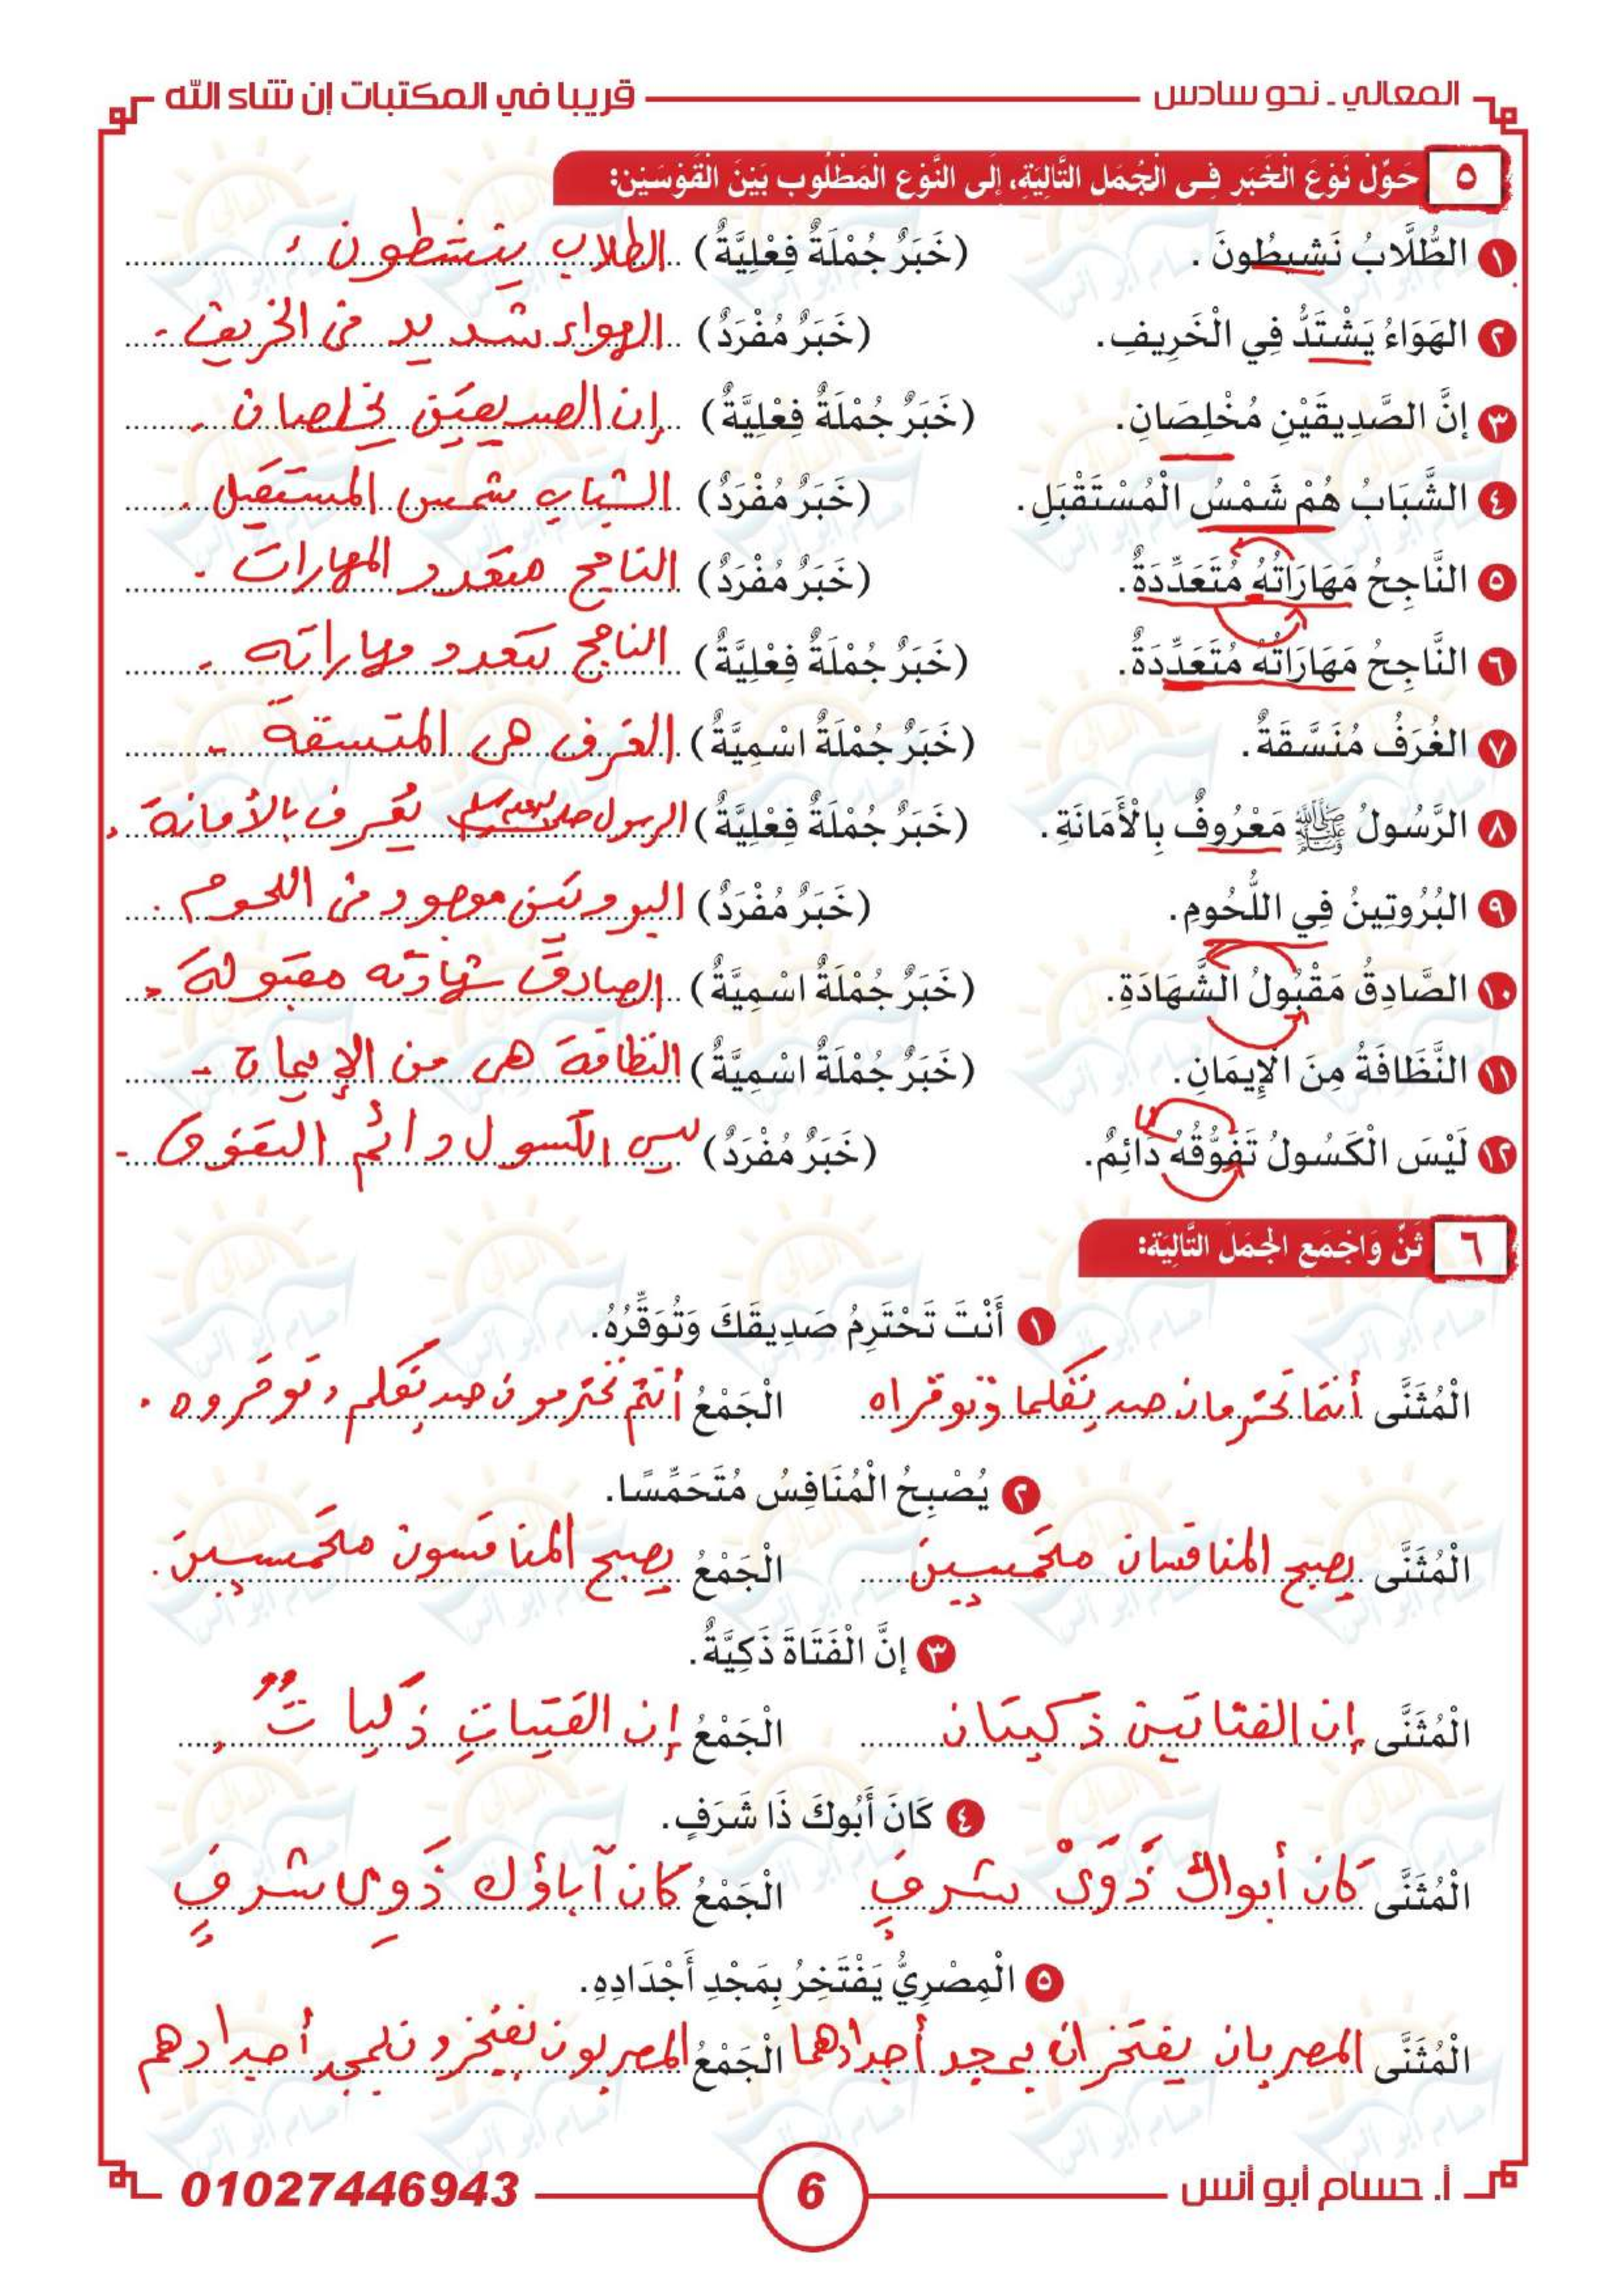 المعالي - نحو سادس قريبا في المكتبات إن شاء الله
٥ حَوِّلْ نَوْعَ الْخَبَرِ فِى الْجُمَلِ التَّالِيَةِ، إِلَى النَّوْعِ الْمَطْلُوبِ بَيْنَ الْقَوْسَيْنِ:
١ الطُّلَّابُ نَشِيطُونَ . (خَبَرٌ جُمْلَةٌ فِعْلِيَّةٌ) الطلاب ينشطون .
٢ الهَوَاءُ يَشْتَدُّ فِي الْخَرِيفِ. (خَبَرٌ مُفْرَدٌ) الهواء شديد في الخريف .
٣ إِنَّ الصَّدِيقَيْنِ مُخْلِصَانِ. (خَبَرٌ جُمْلَةٌ فِعْلِيَّةٌ) إن الصديقين يخلصان .
٤ الشَّبَابُ هُمْ شَمْسُ الْمُسْتَقْبَلِ. (خَبَرٌ مُفْرَدٌ) الشباب شمس المستقبل .
٥ النَّاجِحُ مَهَارَاتُهُ مُتَعَدِّدَةٌ. (خَبَرٌ مُفْرَدٌ) الناجح متعدد المهارات .
٦ النَّاجِحُ مَهَارَاتُهُ مُتَعَدِّدَةٌ. (خَبَرٌ جُمْلَةٌ فِعْلِيَّةٌ) الناجح تتعدد مهاراته .
٧ الغُرَفُ مُنَسَّقَةٌ. (خَبَرٌ جُمْلَةٌ اسْمِيَّةٌ) الغرف هي المتسقة .
٨ الرَّسُولُ ﷺ مَعْرُوفٌ بِالْأَمَانَةِ . (خَبَرٌ جُمْلَةٌ فِعْلِيَّةٌ) الرسول صلى الله عليه وسلم يُعرف بالأمانة .
٩ البُرُوتِينُ فِي اللُّحُومِ. (خَبَرٌ مُفْرَدٌ) البروتين موجود في اللحوم .
١٠ الصَّادِقُ مَقْبُولُ الشَّهَادَةِ. (خَبَرٌ جُمْلَةٌ اسْمِيَّةٌ) الصادق شهادته مقبولة .
١١ النَّظَافَةُ مِنَ الْإِيمَانِ. (خَبَرٌ جُمْلَةٌ اسْمِيَّةٌ) النظافة هي من الإيمان .
١٢ لَيْسَ الْكَسُولُ تَفَوُّقُهُ دَائِمٌ. (خَبَرٌ مُفْرَدٌ) ليس الكسول دائم التفوق .
٦ ثَنِّ وَاجْمَعِ الْجُمَلَ التَّالِيَةَ:
١ أَنْتَ تَحْتَرِمُ صَدِيقَكَ وَتُوَقِّرُهُ.
الْمُثَنَّى أنتما تحترمان صديقكما وتوقراه الْجَمْعُ أنتم تحترمون صديقكم وتوقروه .
٢ يُصْبِحُ الْمُنَافِسُ مُتَحَمِّسًا.
الْمُثَنَّى يصبح المنافسان متحمسين الْجَمْعُ يصبح المنافسون متحمسين .
٣ إِنَّ الْفَتَاةَ ذَكِيَّةٌ.
الْمُثَنَّى إن الفتاتين ذكيتان الْجَمْعُ إن الفتياتِ ذكياتٌ .
٤ كَانَ أَبُوكَ ذَا شَرَفٍ.
الْمُثَنَّى كان أبواك ذَوَيْ شرفٍ الْجَمْعُ كان آباؤك ذَوِي شرفٍ
٥ الْمِصْرِيُّ يَفْتَخِرُ بِمَجْدِ أَجْدَادِهِ.
الْمُثَنَّى المصريان يفتخران بمجد أجدادهما الْجَمْعُ المصريون يفتخرون بمجد أجدادهم
أ. حسام أبو أنس 6 01027446943